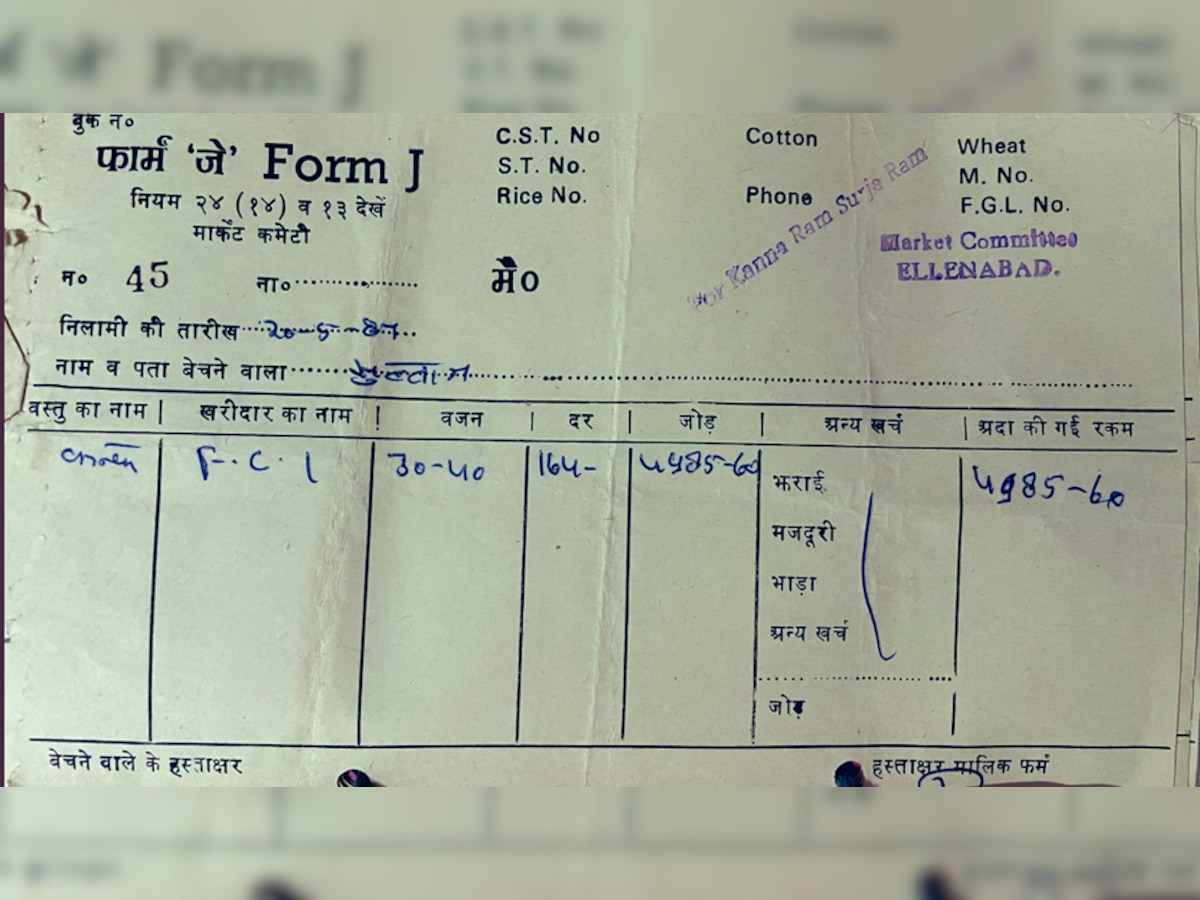 बुक न०
फार्म ‘जे’ Form J
नियम २४ (१४) व १३ देखें
मार्केट कमेटी
C.S.T. No
S.T. No.
Rice No.
Cotton
Phone
Wheat
M. No.
F.G.L. No.
For Kanna Ram Surja Ram
Market Committee
ELLENABAD.
न० 45 ना०.................. मै०
निलामी की तारीख 20-5-87
नाम व पता बेचने वाला
वस्तु का नाम | खरीदार का नाम | वजन | दर | जोड़ | अन्य खर्च | अदा की गई रकम
F.C.I 30-40 164- 4985-60 4985-60
भराई
मजदूरी
भाड़ा
अन्य खर्च
जोड़
बेचने वाले के हस्ताक्षर हस्ताक्षर मालिक फर्म